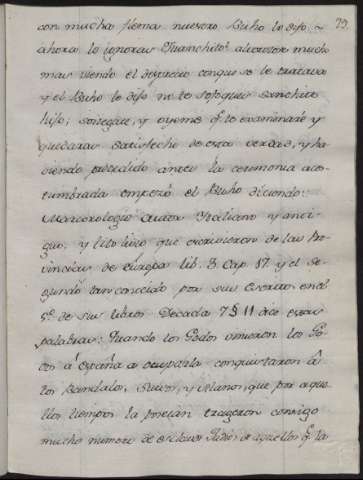 79.
con mucha flema nuestro Buho le dijo
ahora lo ignoras Juanchito? alborotose mucho
mas viendo el desprecio conque se le tratava
y el Buho le dijo no te sofoques Sanchito
hijo; sosiegate, y oyeme q.e te examinaré y
quedaras satisfecho de esta verdad, y ha
viendo precedido antes la ceremonia acos
tumbrada empezó el Buho diciendo:
Autor Italiano y anti-
guo; y Lito Livio que escrivieron de las Pro
vincias de Europa lib. 3. Cap. 17. y el se-
gundo tan conocido por sus Escritos en el
5.º de sus libros Decada 7 § 11 dice estas
palabras: Quando los Godos vinieron los Go-
dos á España a ocuparla conquistaron â
los Bandalos, Suevos, y Alanos, que por aque
llos tiempos la poseían trageron consigo
mucho numero de esclavos Judios de aquellos q.e la